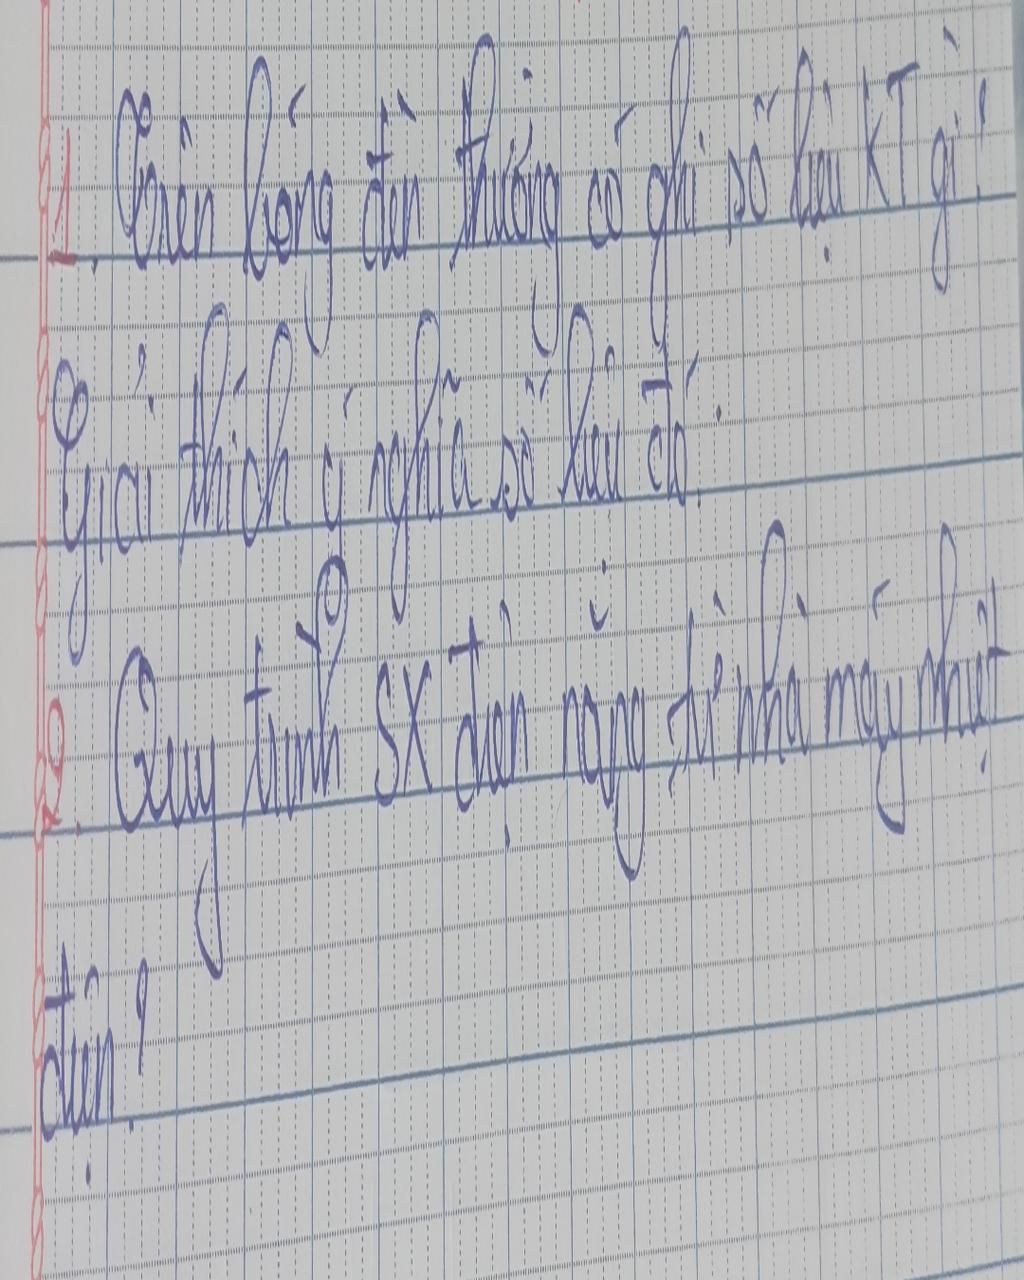 1. Trên bóng đèn thường có ghi số liệu KT gì?
Giải thích ý nghĩa số liệu đó.
2. Quy trình SX điện năng từ nhà máy nhiệt
điện?